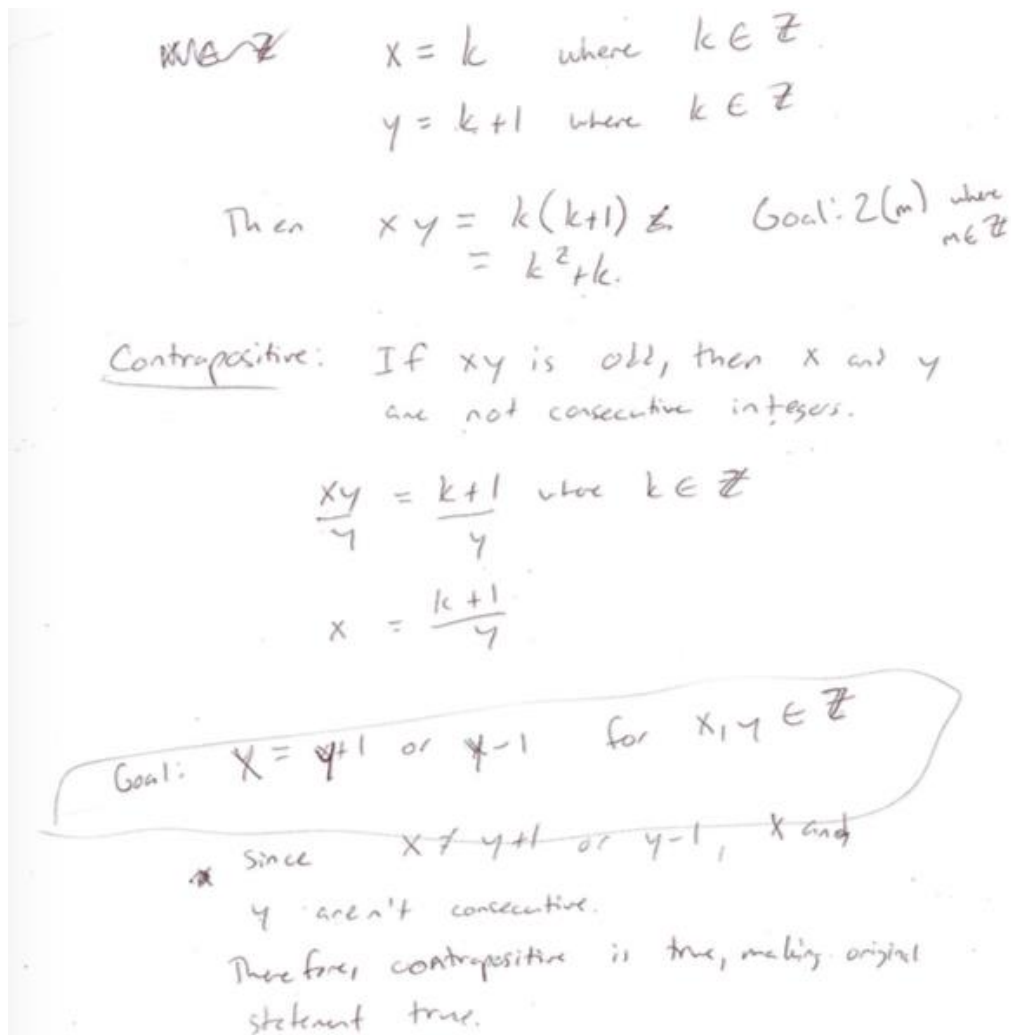 x = k where k ∈ ℤ.
y = k+1 where k ∈ ℤ
Then xy = k(k+1) Goal: 2(m) where m ∈ ℤ
= k²+k.
Contrapositive: If xy is odd, then x and y
are not consecutive integers.
xy/y = k+1/y where k ∈ ℤ
x = k+1/y
Goal: x = y+1 or y-1 for x, y ∈ ℤ
* Since x ≠ y+1 or y-1, x and
y aren't consecutive.
Therefore, contrapositive is true, making original
statement true.